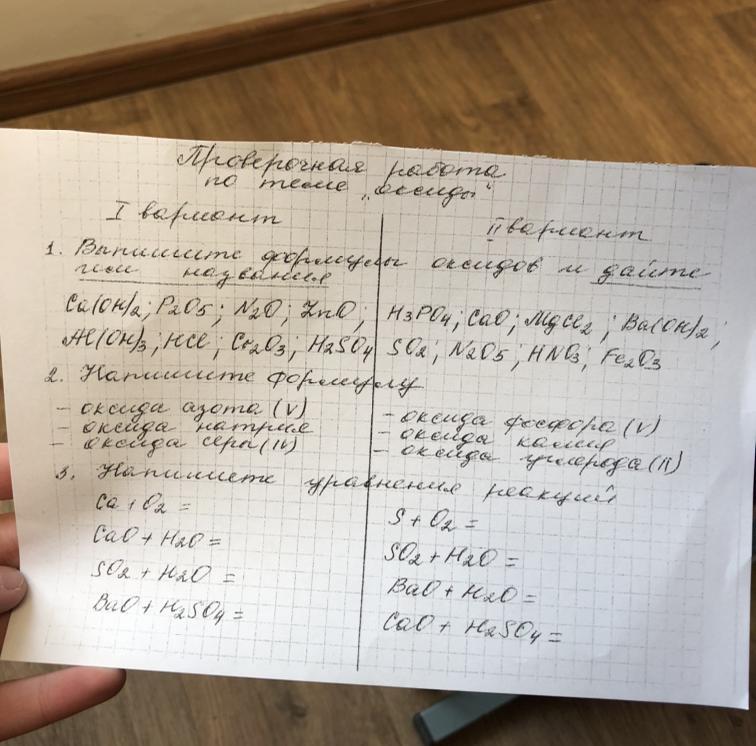 Проверочная работа
по теме „оксиды"
I вариант
II вариант
1. Выпишите формулы оксидов и дайте
им названия
Ca(OH)2; P2O5; N2O; ZnO;
Al(OH)3; HCl; Cr2O3; H2SO4
H3PO4; CaO; MgCl2; Ba(OH)2;
SO2; N2O5; HNO3; Fe2O3
2. Напишите формулу
- оксида азота (V)
- оксида натрия
- оксида серы (IV)
- оксида фосфора (V)
- оксида калия
- оксида углерода (II)
3. Напишите уравнения реакций
Ca + O2 =
CaO + H2O =
SO2 + H2O =
BaO + H2SO4 =
S + O2 =
SO2 + H2O =
BaO + H2O =
CaO + H2SO4 =